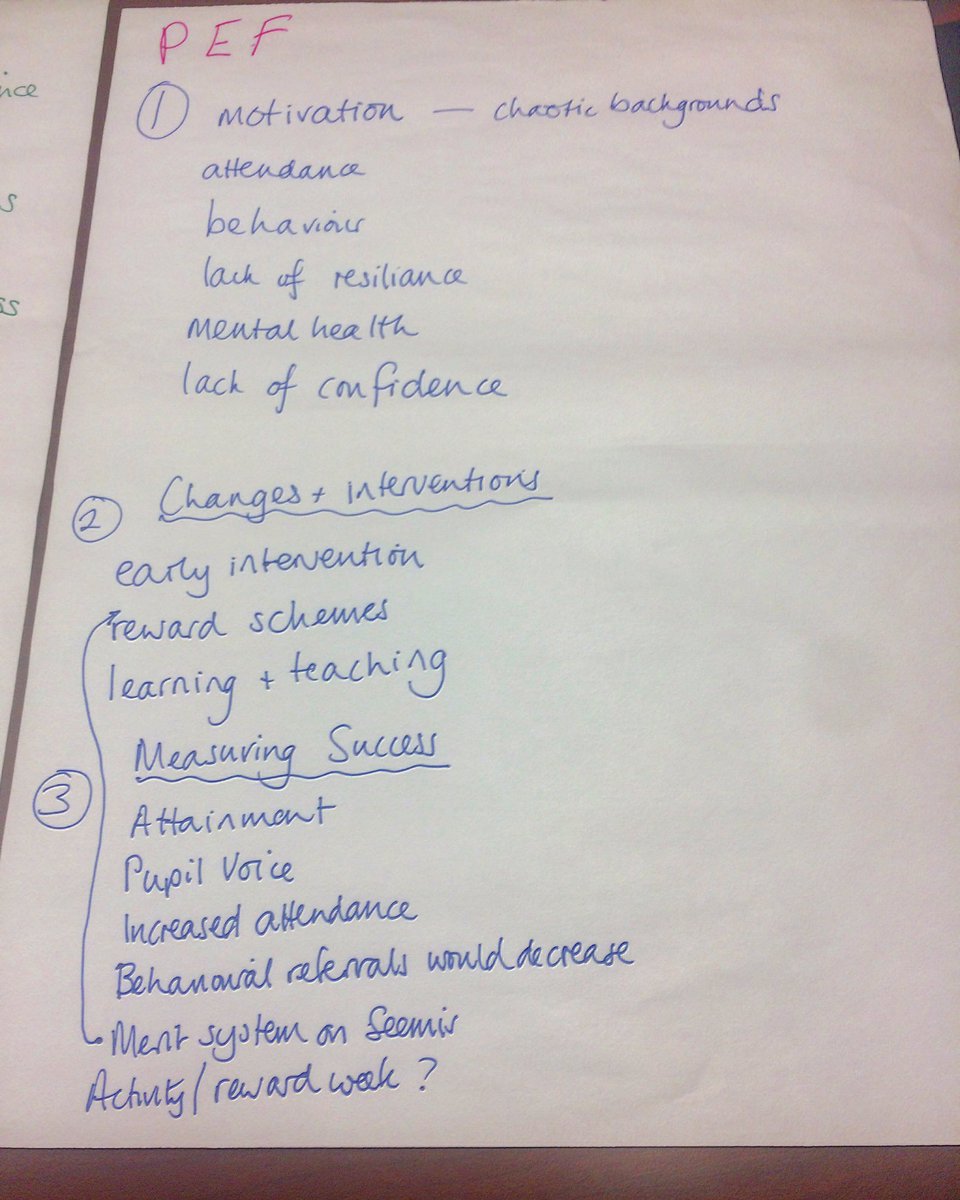 nce
s
ss
PEF
① motivation — chaotic backgrounds
attendance
behaviour
lack of resiliance
mental health
lack of confidence
② Changes + interventions
early intervention
reward schemes
learning + teaching
Measuring Success
③
Attainment
Pupil Voice
Increased attendance
Behavioural referrals would decrease
Merit system on Seemis
Activity/reward week?